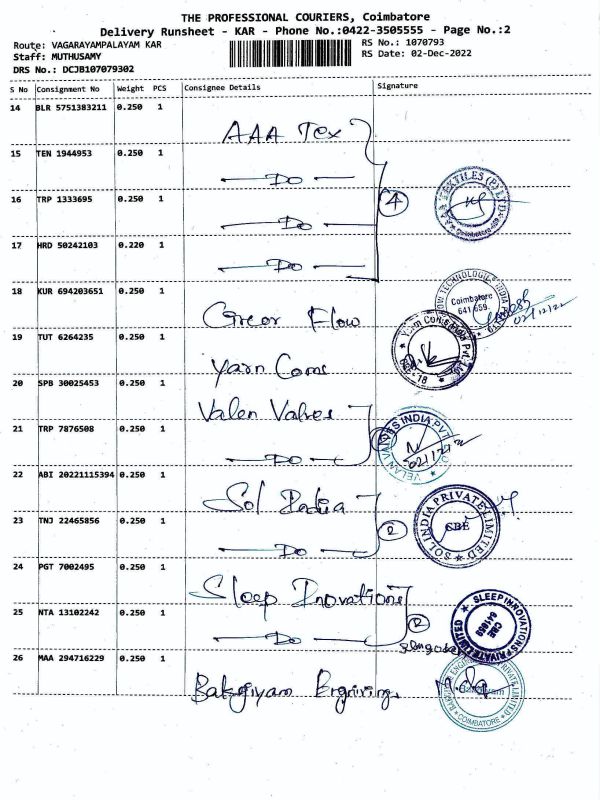 THE PROFESSIONAL COURIERS, Coimbatore
Delivery Runsheet - KAR - Phone No.:0422-3505555 - Page No.:2
Route: VAGARAYAMPALAYAM KAR
RS No.: 1070793
Staff: MUTHUSAMY
RS Date: 02-Dec-2022
DRS No.: DCJB107079302
S No Consignment No Weight PCS Consignee Details Signature
14 BLR 5751383211 0.250 1
AAA Tex
15 TEN 1944953 0.250 1
Do
16 TRP 1333695 0.250 1
Do
4
AAA TEXTILES (P) LTD
Coimbatore
17 HRD 50242103 0.220 1
Do
18 KUR 694203651 0.250 1
Greor Flow
TECHNOLOGIES INDIA
Coimbatore
641 659.
02/12/22
19 TUT 6264235 0.250 1
Yarn Coms
20 SPB 30025453 0.250 1
Valen Valves
21 TRP 7876508 0.250 1
Do
VELAN VALVES INDIA PVT
02/12/22
22 ABI 20221115394 0.250 1
Sol India
23 TNJ 22465856 0.250 1
Do
2
SOL INDIA PRIVATE LIMITED
CBE
24 PGT 7002495 0.250 1
Sleep Inovations
25 NTA 13102242 0.250 1
Do
2
SLEEP INNOVATIONS PRIVATE LIMITED
CBE
641659
26 MAA 294716229 0.250 1
Bakgiyam Engriving
PRIVATE LIMITED
COIMBATORE